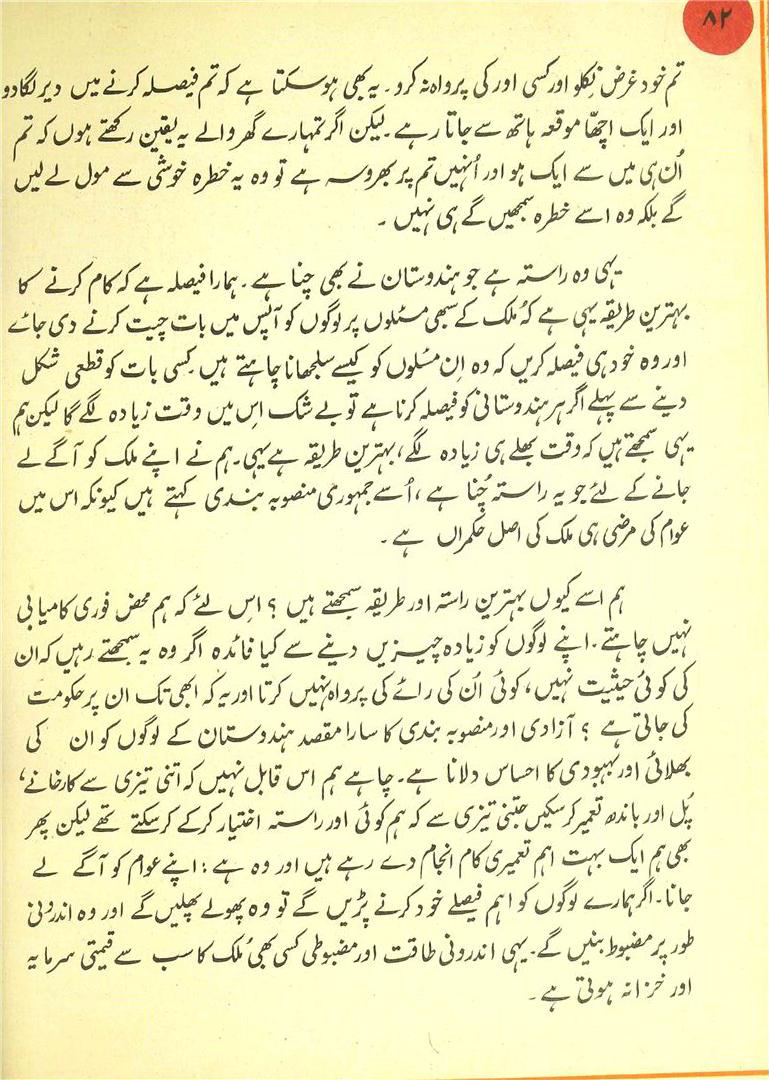 ۸۲
تم خود غرض نکلو اور کسی اور کی پرواہ نہ کرو۔ یہ بھی ہو سکتا ہے کہ تم فیصلہ کرنے میں دیر لگا دو
اور ایک اچھّا موقعہ ہاتھ سے جاتا رہے۔ لیکن اگر تمہارے گھر والے یہ یقین رکھتے ہوں کہ تم
اُن ہی میں سے ایک ہو اور اُنہیں تم پر بھروسہ ہے تو وہ یہ خطرہ خوشی سے مول لے لیں
گے بلکہ وہ اسے خطرہ سمجھیں گے ہی نہیں۔
یہی وہ راستہ ہے جو ہندوستان نے بھی چنا ہے۔ ہمارا فیصلہ ہے کہ کام کرنے کا
بہترین طریقہ یہی ہے کہ ملک کے سبھی مسئلوں پر لوگوں کو آپس میں بات چیت کرنے دی جائے
اور وہ خود ہی فیصلہ کریں کہ وہ اِن مسئلوں کو کیسے سلجھانا چاہتے ہیں۔ کسی بات کو قطعی شکل
دینے سے پہلے اگر ہر ہندوستانی کو فیصلہ کرنا ہے تو بے شک اِس میں وقت زیادہ لگے گا لیکن ہم
یہی سمجھتے ہیں کہ وقت بھلے ہی زیادہ لگے، بہترین طریقہ ہے یہی۔ ہم نے اپنے ملک کو آگے لے
جانے کے لئے جو یہ راستہ چُنا ہے، اُسے جمہوری منصوبہ بندی کہتے ہیں کیونکہ اس میں
عوام کی مرضی ہی ملک کی اصل حکمراں ہے۔
ہم اسے کیوں بہترین راستہ اور طریقہ سمجھتے ہیں؟ اِس لئے کہ ہم محض فوری کامیابی
نہیں چاہتے۔ اپنے لوگوں کو زیادہ چیزیں دینے سے کیا فائدہ اگر وہ یہ سمجھتے رہیں کہ ان
کی کوئی حیثیت نہیں، کوئی اُن کی رائے کی پرواہ نہیں کرتا اور یہ کہ ابھی تک ان پر حکومت
کی جاتی ہے؟ آزادی اور منصوبہ بندی کا سارا مقصد ہندوستان کے لوگوں کو ان کی
بھلائی اور بہبودی کا احساس دلانا ہے۔ چاہے ہم اس قابل نہیں کہ اتنی تیزی سے کارخانے،
پُل اور باندھ تعمیر کر سکیں جتنی تیزی سے کہ ہم کوئی اور راستہ اختیار کرکے کر سکتے تھے لیکن پھر
بھی ہم ایک بہت اہم تعمیری کام انجام دے رہے ہیں اور وہ ہے: اپنے عوام کو آگے لے
جانا۔ اگر ہمارے لوگوں کو اہم فیصلے خود کرنے پڑیں گے تو وہ پھولے پھلیں گے اور وہ اندرونی
طور پر مضبوط بنیں گے۔ یہی اندرونی طاقت اور مضبوطی کسی بھی مُلک کا سب سے قیمتی سرمایہ
اور خزانہ ہوتی ہے۔